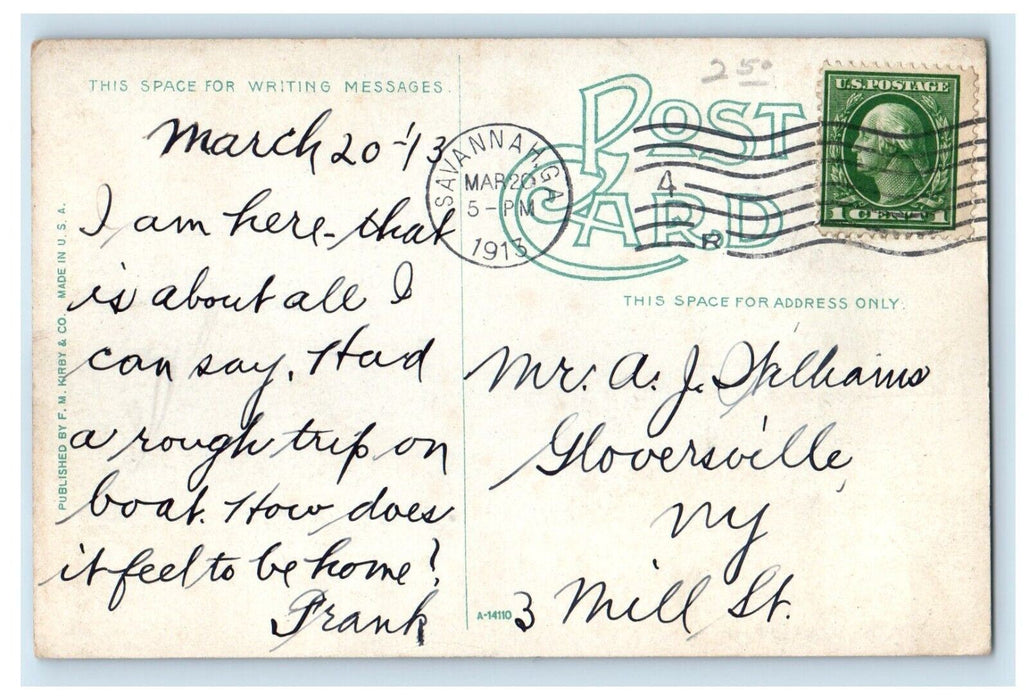 THIS SPACE FOR WRITING MESSAGES.
March 20-'13
I am here-that
is about all I
can say. Had
a rough trip on
boat. How does
it feel to be home?
Frank
PUBLISHED BY F. M. KIRBY & CO. MADE IN U. S. A.
A-14110
SAVANNAH, GA
MAR 20
5-PM
1913
2 50
POST CARD
4
R
U.S. POSTAGE
1 CENT 1
THIS SPACE FOR ADDRESS ONLY.
Mr. A. J. Williams
Gloversville,
NY
3 Mill St.